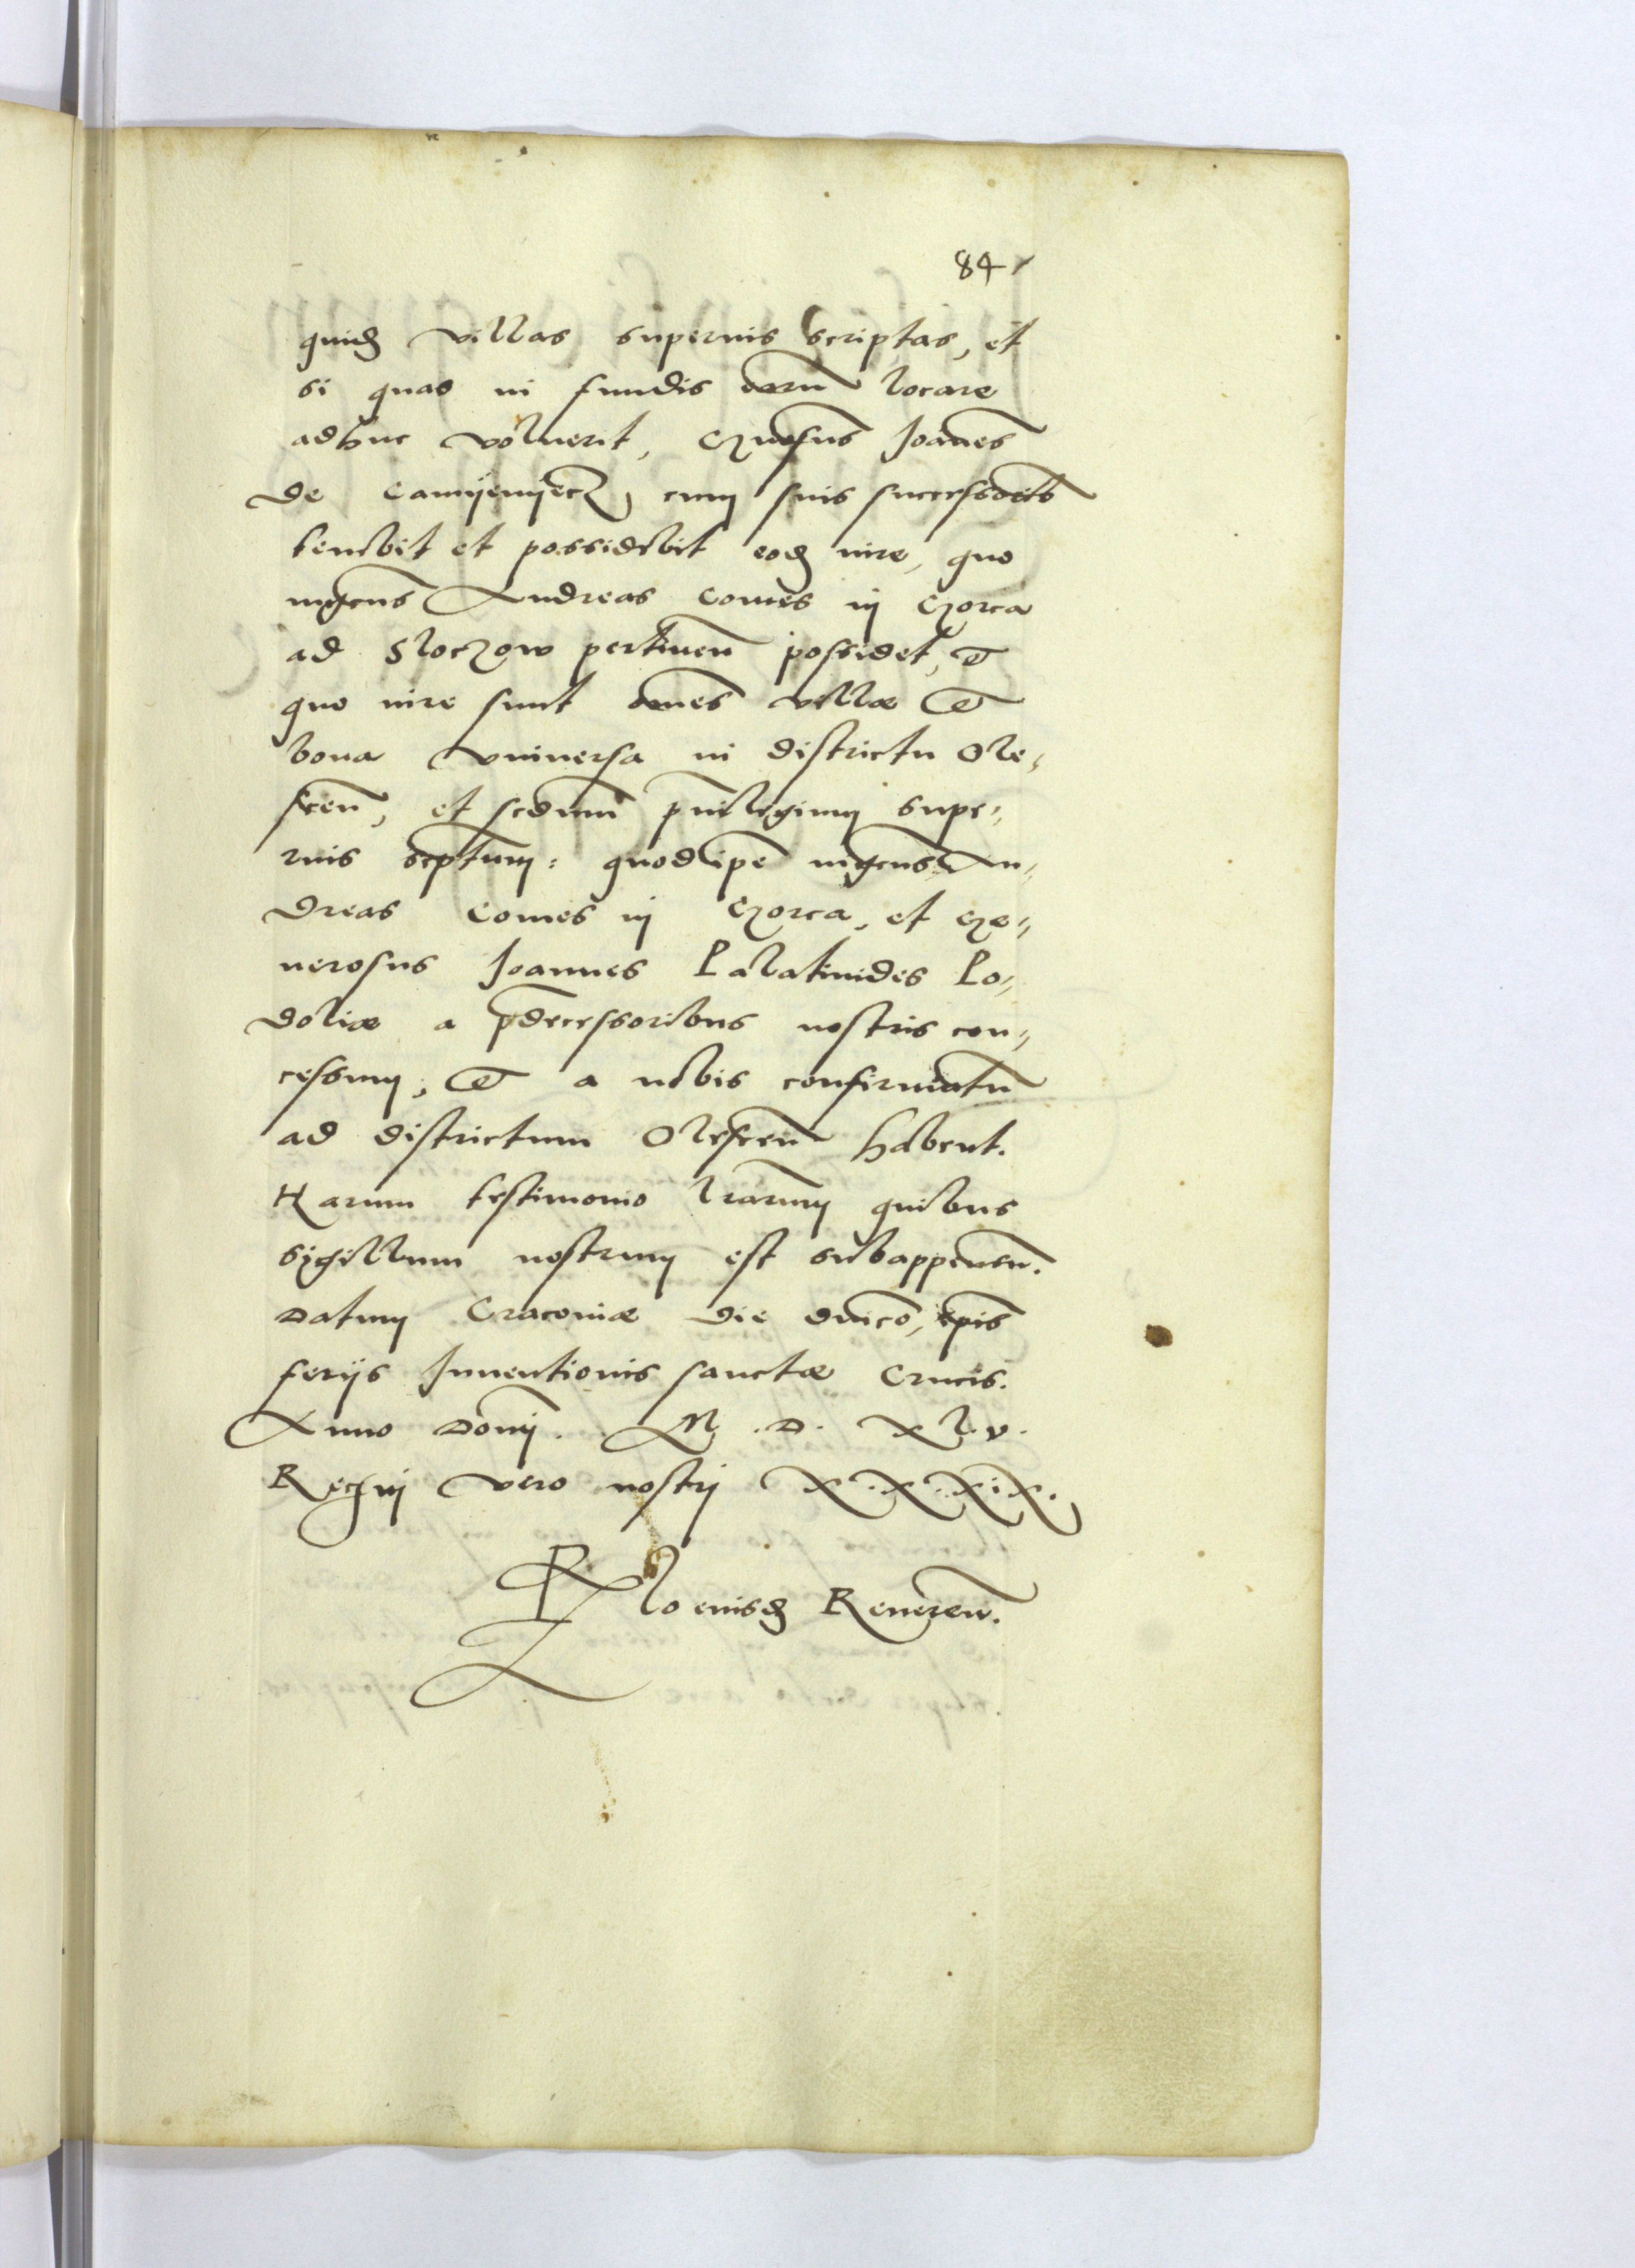 84
quidẽ villas superius scriptas, et
si quas in fundis earũ locare
adhuc voluerit, Gñosus Joañes
de Camyenyecz, cum suis successorib̃
tenebit et possidebit eodẽ iure, quo
mgcus Andreas Comes in Gorca
ad Sloczow pertineñ possidet, et
quo iure sunt oñes villæ et
bona vniuersa in districtu Ole,,
sceñ, et scdum p̃uilegium supe,,
rius scptum: quod ip̃e mgcus An,,
dreas Comes in Gorca, et Ge,,
nerosus Joannes Palatinides Po,,
doliæ a p̃decessoribus nostris con,,
cessum, et a nobis confirmatũ
ad districtum Olesceñ habent.
Harum testimonio l̃rarum quibus
sigillum nostrum est subappensũ.
Datum Cracoviæ die dñico, ip̃is
ferijs Inuentionis sanctæ Crucis.
Anno Domj. M. D. XL.V.
Regni vero nostrj X.X.X.i.X.
Rlo eiusdẽ Reuereñ.